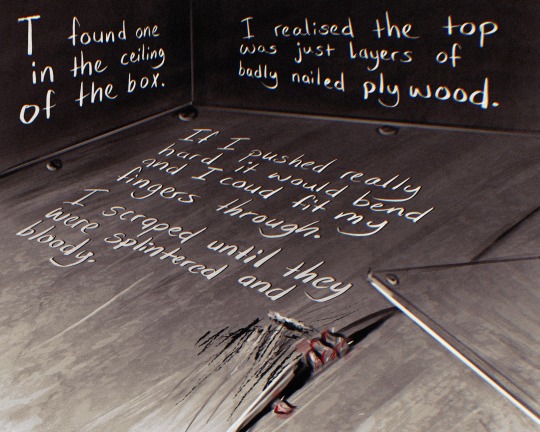 I found one
in the ceiling
of the box.
I realised the top
was just layers of
badly nailed plywood.
If I pushed really
hard, it would bend
and I coud fit my
fingers through.
I scraped until they
were splintered and
bloody.